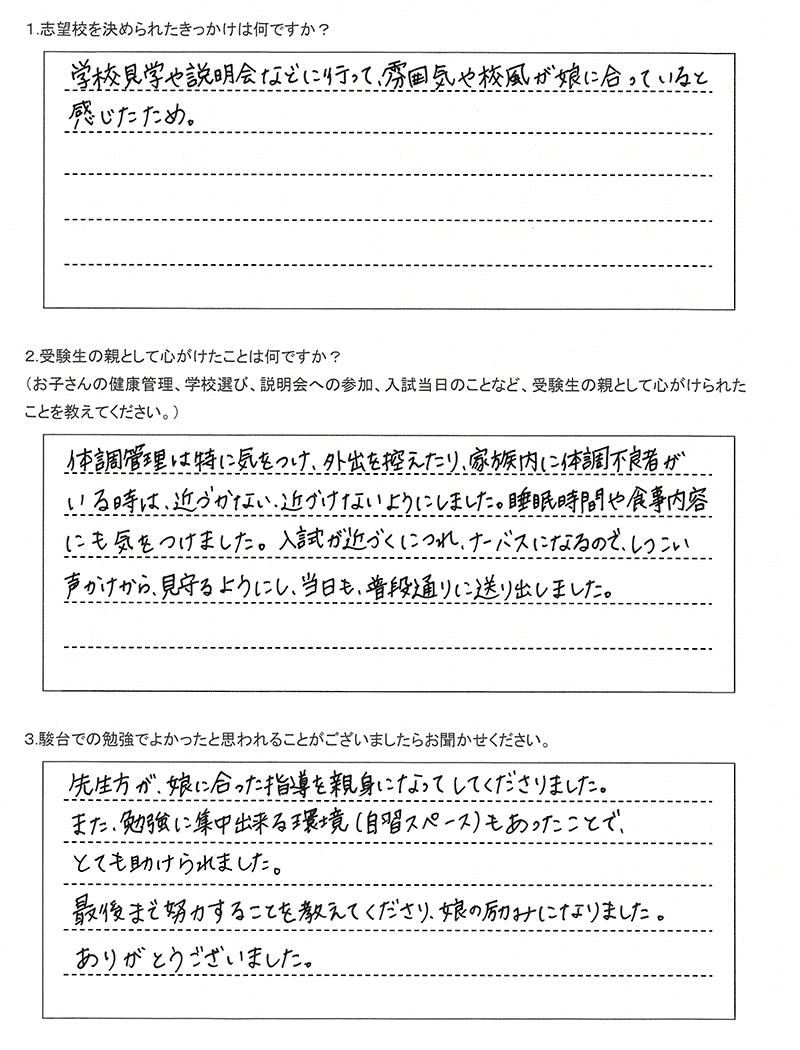 1.志望校を決められたきっかけは何ですか？
学校見学や説明会などに行って、雰囲気や校風が娘に合っていると
感じたため。
2.受験生の親として心がけたことは何ですか？
（お子さんの健康管理、学校選び、説明会への参加、入試当日のことなど、受験生の親として心がけられた
ことを教えてください。）
体調管理は特に気をつけ、外出を控えたり、家族内に体調不良者が
いる時は、近づかない、近づけないようにしました。睡眠時間や食事内容
にも気をつけました。入試が近づくにつれ、ナーバスになるので、しつこい
声かけから、見守るようにし、当日も、普段通りに送り出しました。
3.駿台での勉強でよかったと思われることがございましたらお聞かせください。
先生方が、娘に合った指導を親身になってしてくださりました。
また、勉強に集中出来る環境（自習スペース）もあったことで、
とても助けられました。
最後まで努力することを教えてくださり、娘の励みになりました。
ありがとうございました。